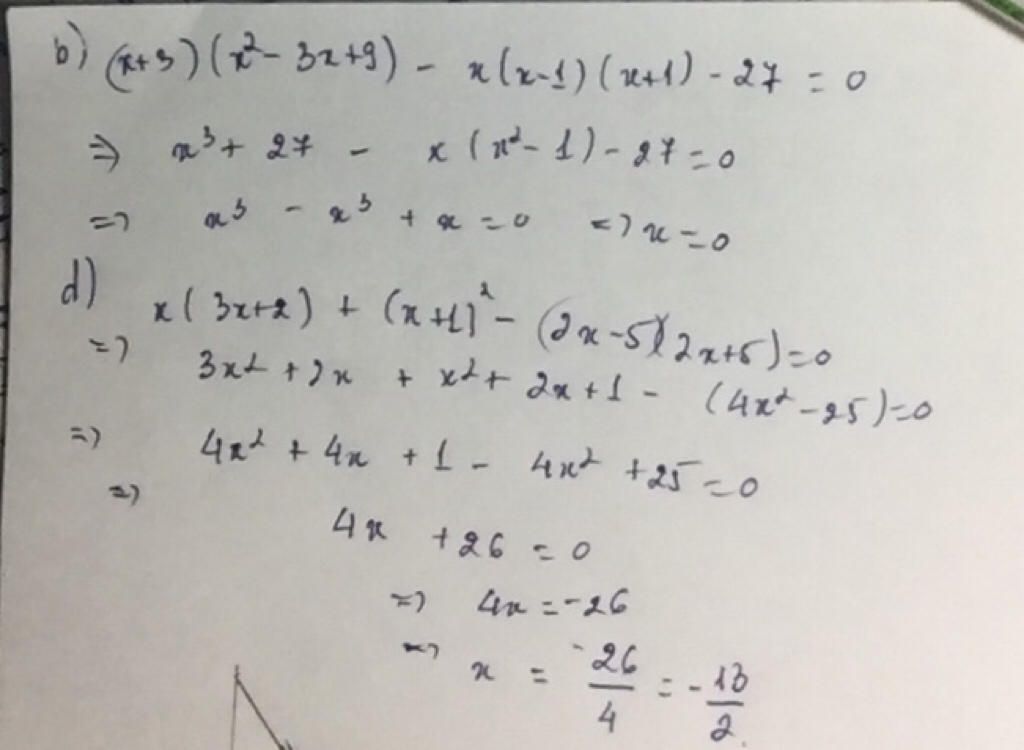 b) (x+3)(x² - 3x+9) - x(x-1)(x+1) - 27 = 0
=> x³ + 27 - x(x²-1) - 27 = 0
=> x³ - x³ + x = 0 => x = 0
d) x(3x+2) + (x+1)² - (2x-5)(2x+5) = 0
=> 3x² + 2x + x² + 2x + 1 - (4x² - 25) = 0
=> 4x² + 4x + 1 - 4x² + 25 = 0
=> 4x + 26 = 0
=> 4x = -26
=> x = -26/4 = -13/2